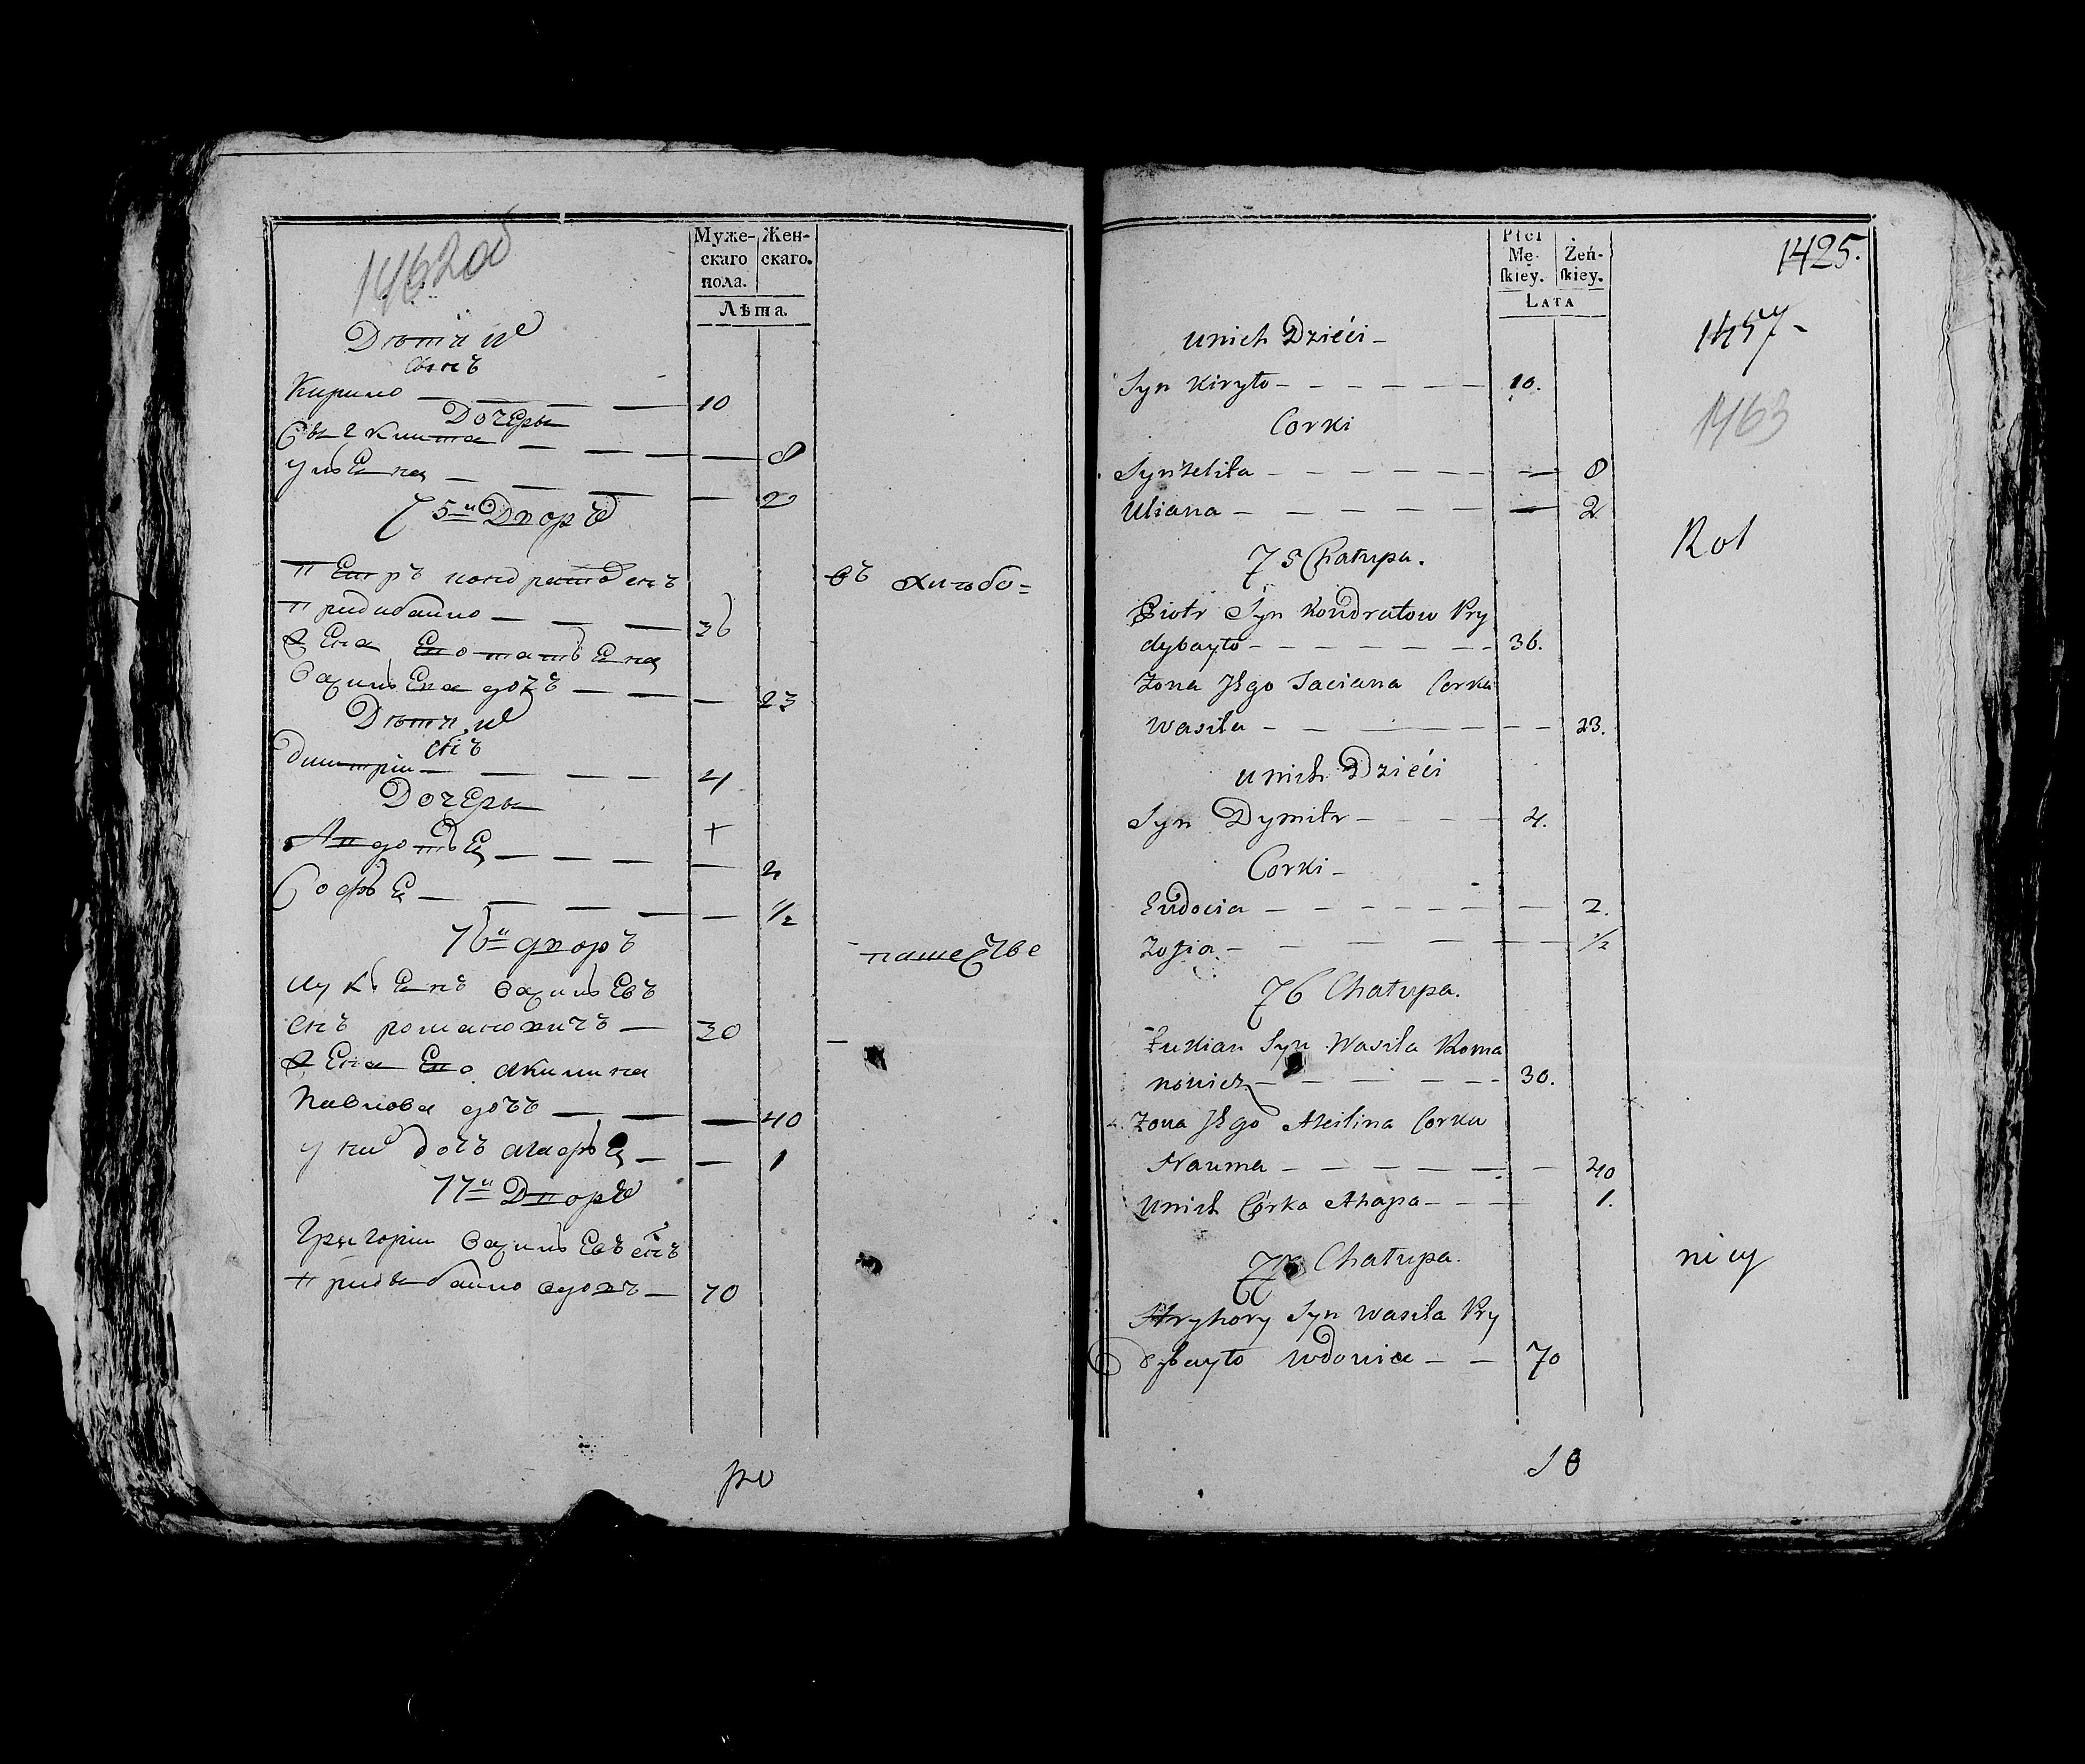 1462об
Муже-
скаго
пола.
Жен-
скаго.
Лѣта.
Дѣти ихъ
снъ
Кирило — — — — 10
Дочеры
— — — 8
ульЕна — — — — 2
75й Дворъ
пЕтръ кондратовъ снъ
въ хлѣбо=
придибайло — — — 36
жЕна Его татьЕна
василЕва дочъ — — — 23
Дѣти ихъ
снъ
дмитрiи — — — — 4
Дочеры
Авдотья — — — — 2
Софья — — — — 1/2
76й дворъ
пашестве
лукьЕнъ василЕвъ
снъ романовичъ — 30
жЕна Его акилина
дочъ — — — 40
у них дочъ — — 1
77й Дворъ
Григорiи василЕвъ снъ
придыбайло вдовъ — 70
ро
1425.
Płci
Mę-
skiey.
Żeń-
skiey.
Lata
1457-
1463
unich Dzieći -
Syn Kiryło - - - - - - 10.
Corki
Synklita - - - - - - — 8
Uliana - - - - - - — 2
75 Chałupa.
Rol
Piotr Syn Kondratow Pry
dybayło - - - - - - - 36.
Zona Jego Taciana Corka
Wasila - - - - - - 23.
unich Dzieći
Syn Dymitr - - - - 4.
Corki -
Eudocia - - - - - - - 2.
Zofia - - - - - - 1/2
76 Chałupa.
Łukian Syn Wasila Roma
nowicz - - - - - - 30.
Zona Jego Akilina Corka
Nauma - - - - - - 40
Unich Córka Ahapa - - - - 1.
77 Chałupa.
nicy
Hryhory Syn Wasila Pry
dybayło wdowiec - - 70